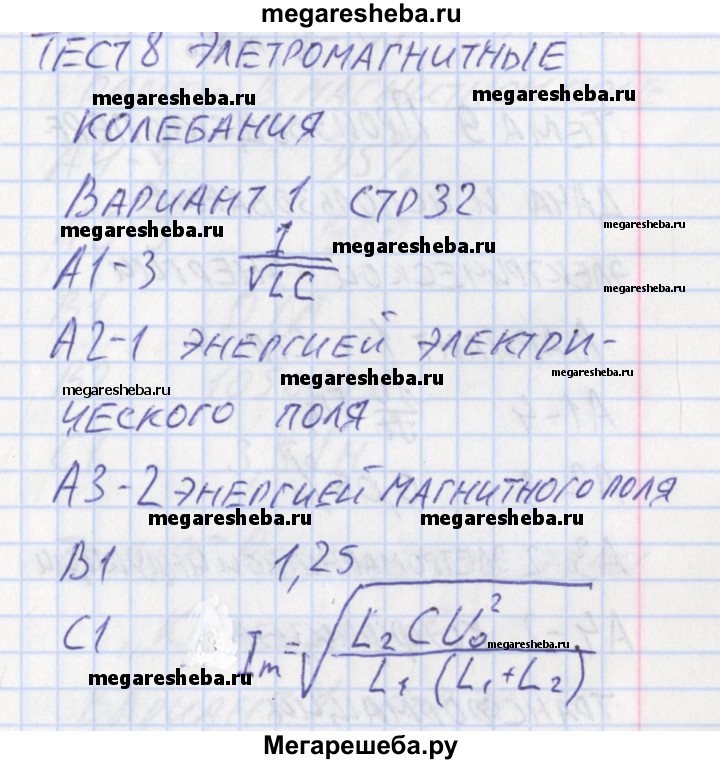 megaresheba.ru
ТЕСТ 8 ЭЛЕТРОМАГНИТНЫЕ
megaresheba.ru megaresheba.ru
КОЛЕБАНИЯ
ВАРИАНТ 1 СТР 32
megaresheba.ru megaresheba.ru megaresheba.ru
А1-3 1/√LC
megaresheba.ru
А2-1 ЭНЕРГИЕЙ ЭЛЕКТРИ-
megaresheba.ru megaresheba.ru megaresheba.ru
ЧЕСКОГО ПОЛЯ
А3-2 ЭНЕРГИЕЙ МАГНИТНОГО ПОЛЯ
megaresheba.ru megaresheba.ru
В1 1,25
С1 Im=√(L₂CU₀²/L₁(L₁+L₂))
megaresheba.ru megaresheba.ru
Мегарешеба.ру